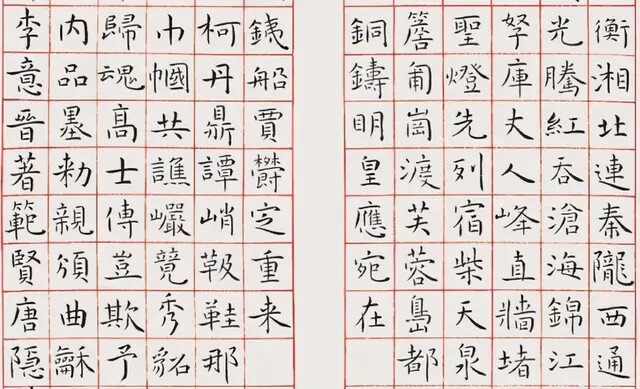 衡湘北連秦隴西通
光騰紅吞滄海錦江
孥庫丈人峰直牆堵
聖燈先列宿柴天泉
簷崗渡芙蓉島都
銅鑄明皇應宛在
銕船賈欝定重来
柯丹鼎譚峭靸鞋那
巾幗共譙巖竟秀貂
歸魂高士傳豈欺予
内品墨勑親頒曲龢
李意晉著範賢唐隱